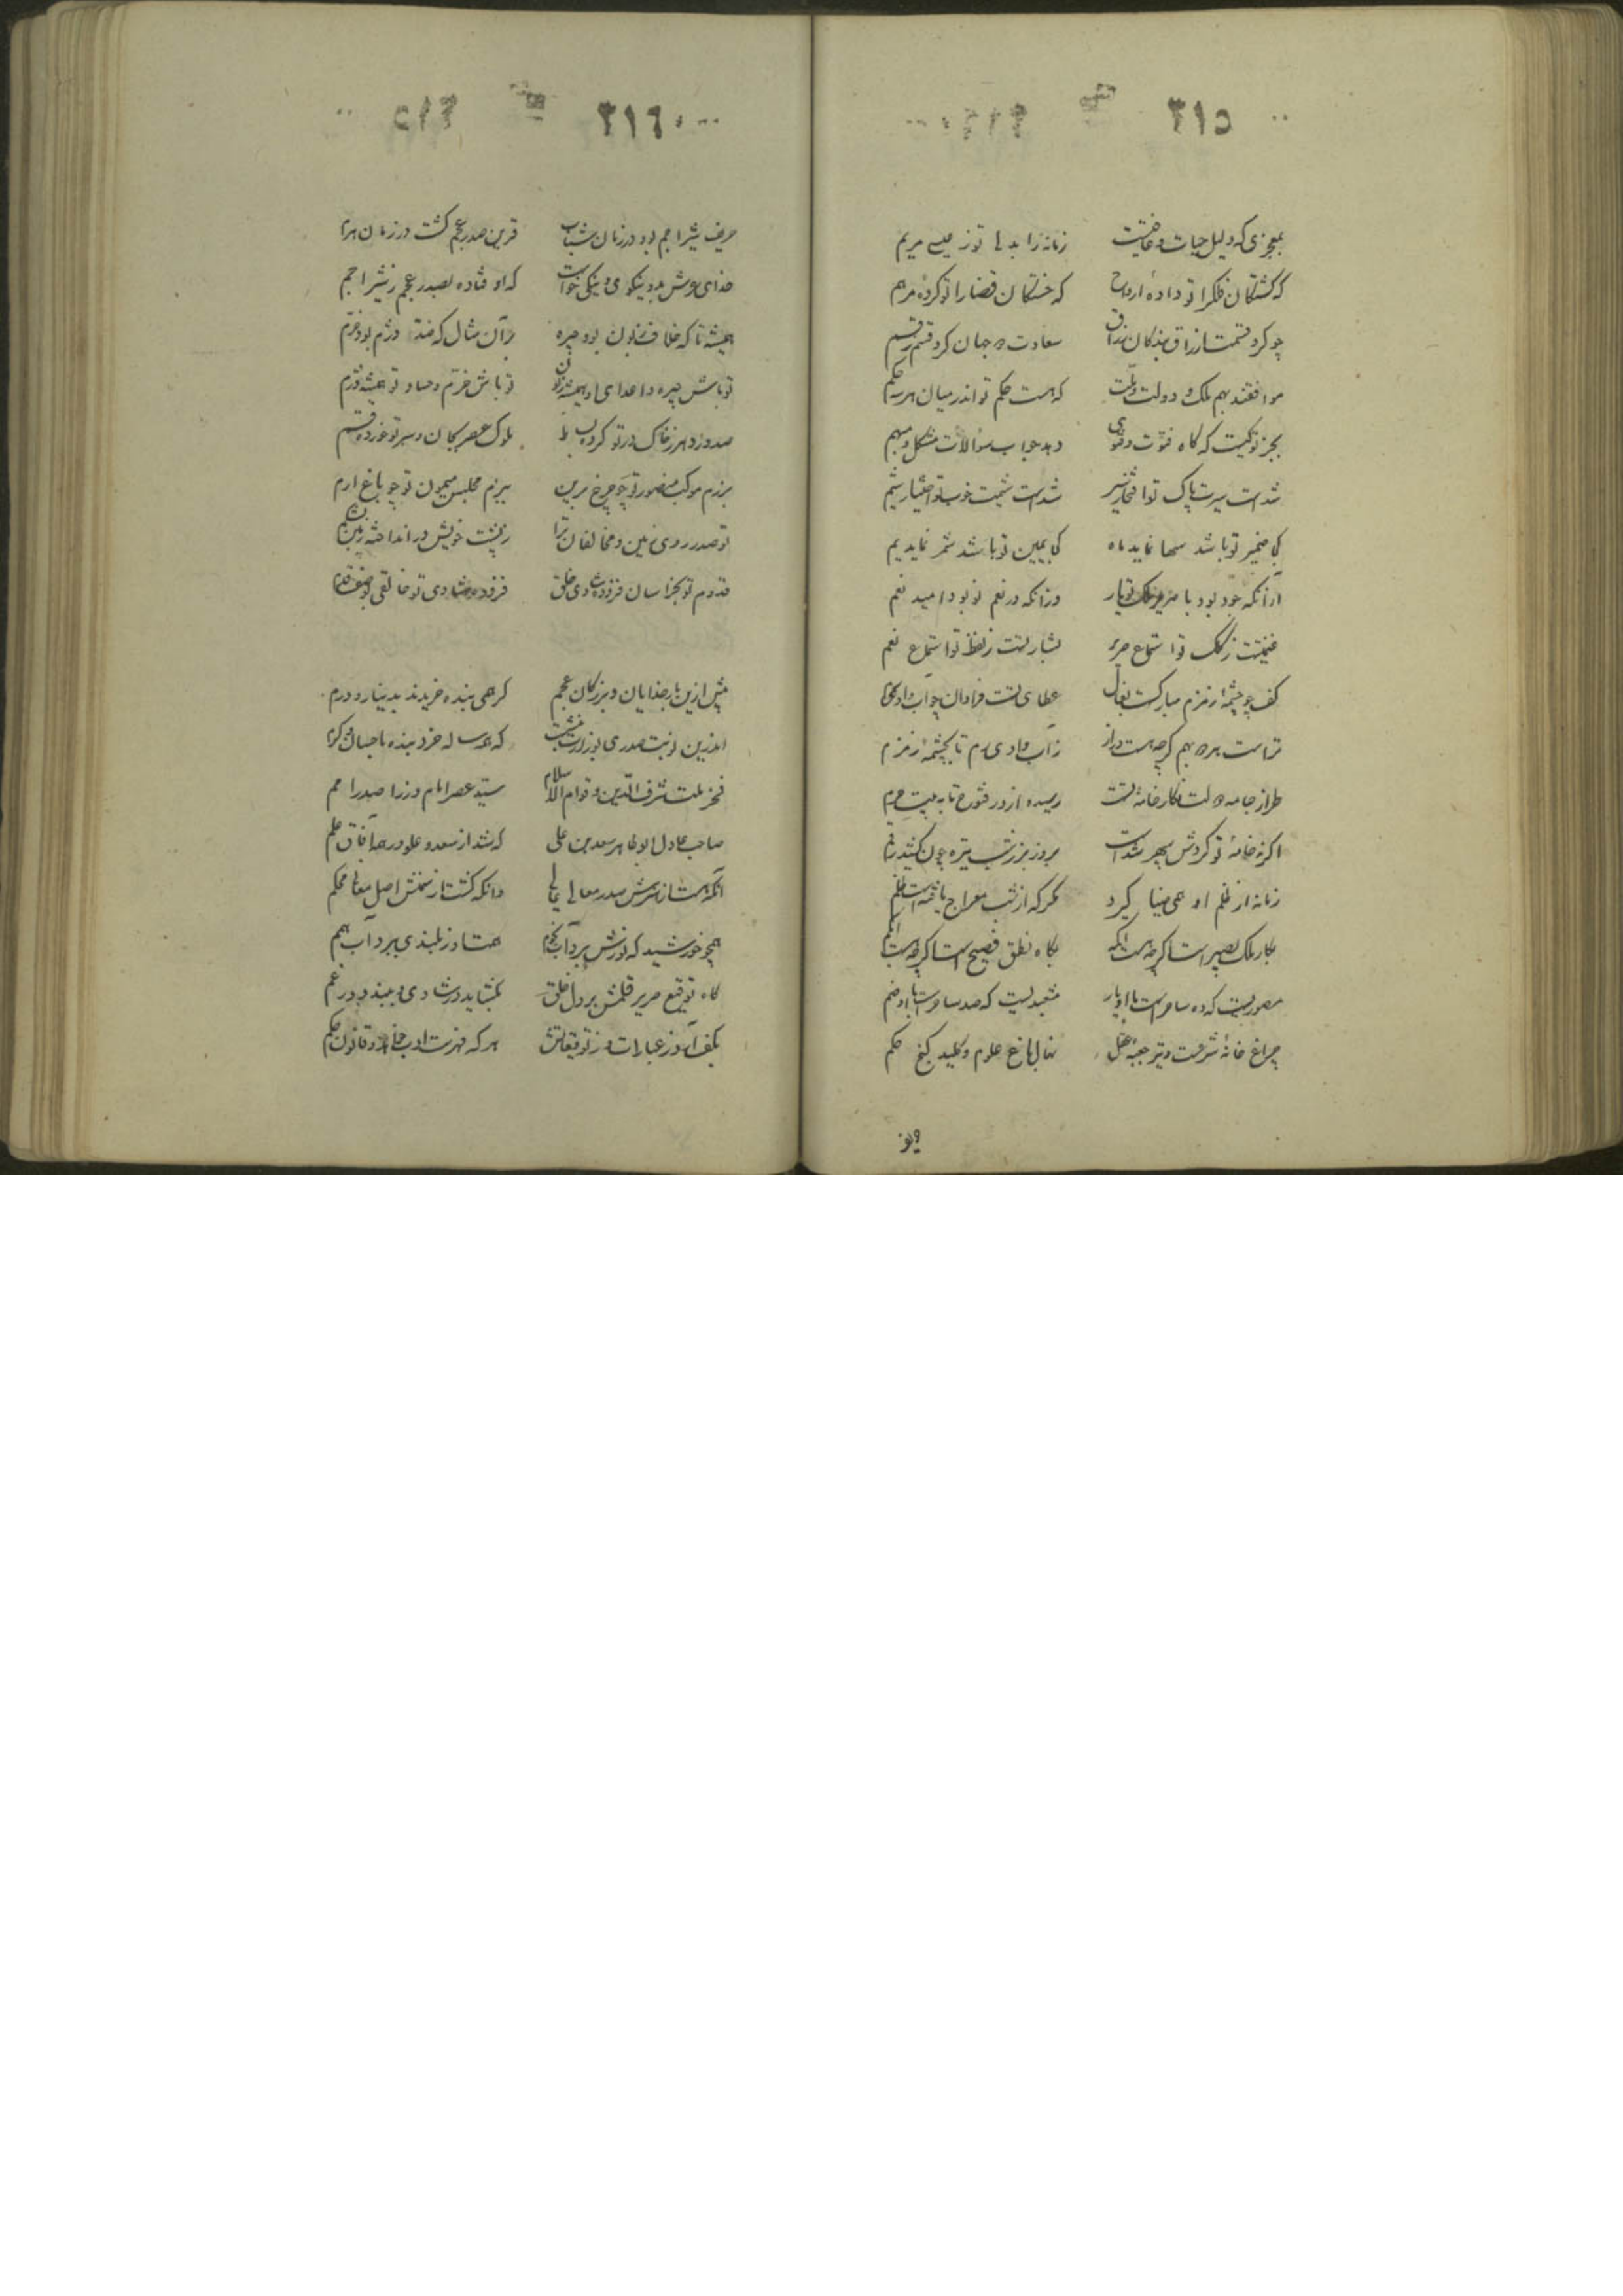 ٣١٥
بمعجزی که دلیل حیات و عافیتست زمانه را بدلها تو ز عیسی مریم
که کشتگان فلک را تو دادهٔ ارواح که خستگان قضا را تو کردهٔ مرهم
چو کرد قسمت ارزاق بندکان رزاق سعادت جهان کرد قسم
موافقند بهم ملک و دولت و ملت که هست حکم تو اندر میان هر سه حکم
بجز تو کیست که کاه فتوت و فتوی دهد جواب سؤالات مشکل و مبهم
شدست سیرت پاک تو افتخار شدست شیمت خوب تو اختیار شیم
کجا ضمیر تو باشد سها نماید ماه کجا یمین تو باشد شمر نماید یم
ازآنکه جود بود با صریر کلک تو یار وزآنکه در نعم تو بود امید نعم
غنیمتست ز کلک تو استماع صریر بشارتست ز لفظ تو استماع نعم
کف چو چشمهٔ زمزم مبارکست بفال عطای تست فراوان چو آب وادی
تراست بهره بهم کرچه هست دراز ز آب وادی تا بچشمهٔ زمزم
طراز جامه دولت نکار خامهٔ تست رسیده از در تا به بیت حرم
اکر نه خامهٔ تو کردش سپهر شدست بروز بر ز شب تیره چون کشید رقم
زمانه از قلم او همی ضیا کیرد مکر که از شب معراج یافتست ظلم
بکار ملک بصیر است اکرچه هست اکمه بکاه نطق فصیح است اکرچه هست ابکم
مصوریست که ده ساحرست با او یار مشعبدیست که صد ساحرست با او ضم
چراغ خانهٔ شرعست و تیر جعبهٔ عقل نهال باغ علوم و کلید کنج حکم
٣١٦
حریف شیر اجم بود در زمان شباب قرین صدر عجم کشت در زمان هرم
خدای عرش بدو نیکوی و نیکی خواست که او فتاده بصدر عجم ز شیر اجم
همیشه تا که خلاف زبون بود چیره بر آن مثال که ضد دژم بود خرم
تو باش چیره و اعدای تو همیشه زبون تو باش خرم و حساد تو همیشه دژم
صدور دهر ز خاک در تو کرده بساط ملوک عصر بجان و سر تو خورده قسم
برزم موکب منصور تو چو چرخ برین ببزم مجلس میمون تو چو باغ ارم
تو صدر روی زمین و مخالفان ترا ز پشت خویش در انداخته زمین بشکم
قدوم تو بخراسان فزوده شادی خلق فزوده شادی تو خالقی
پیش ازین بارخدایان و بزرکان عجم کرهمی بنده خریدند بدینار و درم
اندرین نوبت صدری بوزارت بنشست که همه ساله خرد بنده باحسان و کرم
فخر ملت شرف الدین و قوام الاسلام سید عصر امام وزرا صدر امم
صاحب عادل ابوطاهر سعد بن علی که شد از سعد و علو در همه آفاق علم
آنکه هست از هنرش صدر معالی عالی وانکه کشت از سخنش اصل معانی محکم
همچو خورشید که نورش ببرد آب نجوم همت او ز بلندی ببرد آب همم
کاه توقیع صریر قلمش بر دل خلق بکشاید در شادی و ببندد در غم
بکف آور ز عبارات و ز توقیعاتش هر که فهرست ادب خواهد و قانون حکم